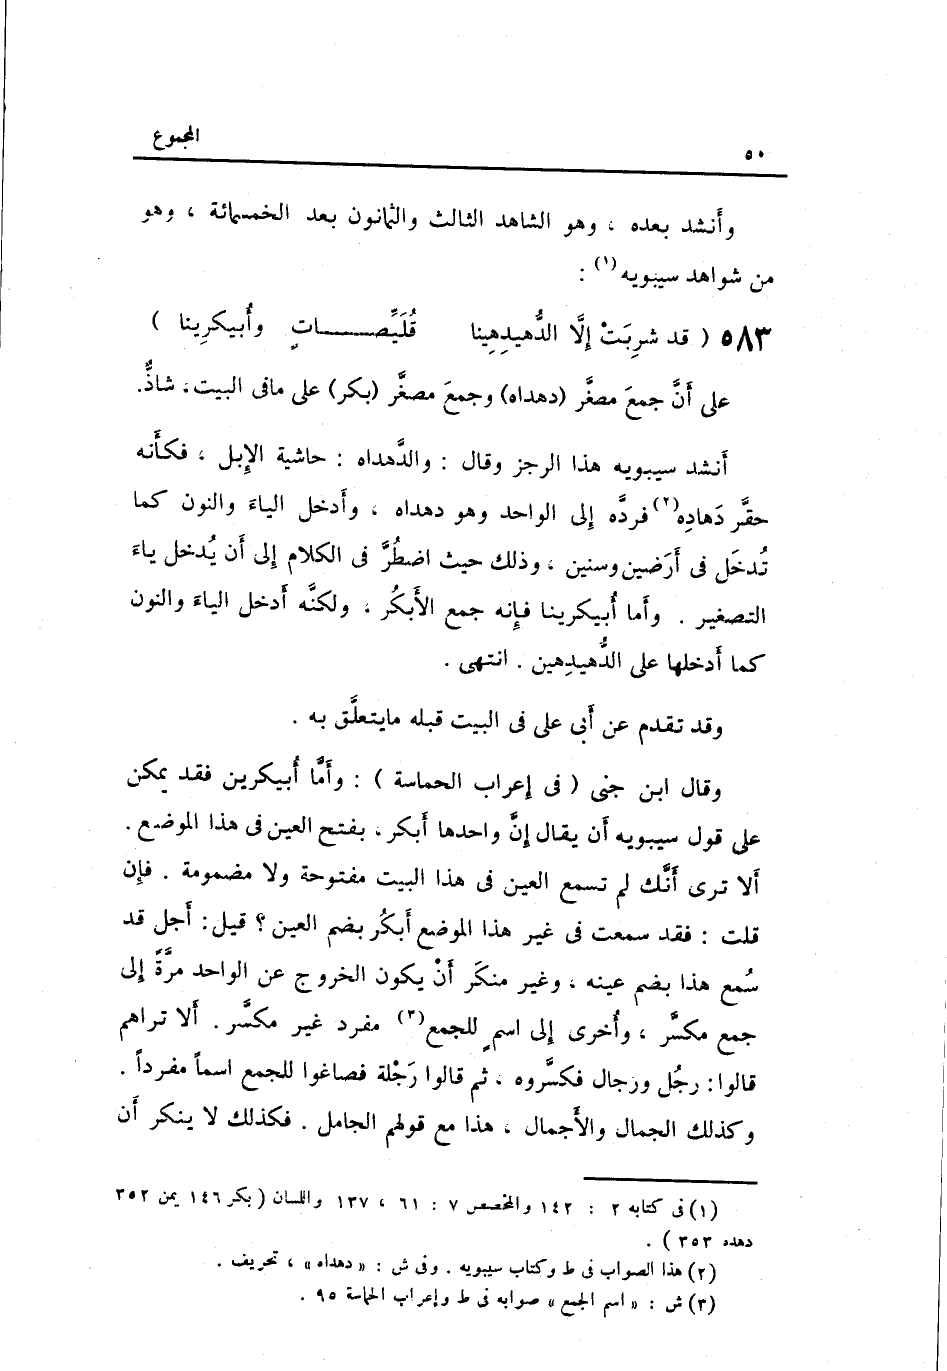 المجموع
٥٠
وأَنشد بعده ، وهو الشاهد الثالث والثمانون بعد الخمسمائة ، وهو
من شواهد سيبويه(١) :
٥٨٣ ( قد شرِبَتْ إلَّا الدُّهيدِهِينا قُلَيِّصـــــــاتٍ وأُبيكرِينا )
على أنَّ جمعَ مصغَّر (دهداه) وجمعَ مصغَّر (بكر) على مافى البيت، شاذٌّ.
أنشد سيبويه هذا الرجز وقال : والدَّهداه : حاشية الإِبل ، فكأَنه
حقَّر دَهادِه(٢) فردَّه إلى الواحد وهو دهداه ، وأَدخل الياءَ والنون كما
تُدخَل فى أَرَضين وسنين ، وذلك حيث اضطُرَّ فى الكلام إلى أن يُدخل ياءَ
التصغير . وأَما أُبيكرينا فإِنه جمع الأَبكُر ، ولكنَّه أدخل الياءَ والنون
كما أدخلها على الدُّهيدِهين . انتهى .
وقد تقدم عن أَبى على فى البيت قبله مايتعلَّق به .
وقال ابن جنى ( فى إعراب الحماسة ) : وأَمَّا أُبيكرين فقد يمكن
على قول سيبويه أن يقال إنَّ واحدها أبكر ، بفتح العين فى هذا الموضع .
أَلا ترى أَنَّك لم تسمع العين فى هذا البيت مفتوحة ولا مضمومة . فإن
قلت : فقد سمعت فى غير هذا الموضع أبكُر بضم العين ؟ قيل : أَجل قد
سُمع هذا بضم عينه ، وغير منكَر أنْ يكون الخروج عن الواحد مرَّةً إلى
جمع مكسَّر ، وأُخرى إلى اسمٍ للجمع(٣) مفرد غير مكسَّر . أَلا تراهم
قالوا : رجُل ورجال فكسَّروه ، ثم قالوا رَجْلة فصاغوا للجمع اسماً مفرداً .
وكذلك الجمال والأَجمال ، هذا مع قولهم الجامل . فكذلك لا ينكر أن
(١) فى كتابه ٢ : ١٤٢ والمخصص ٧ : ٦١ ، ١٣٧ واللسان ( بكر ١٤٦ يمن ٣٥٢
دهده ٣٥٣ ) .
(٢) هذا الصواب فى ط وكتاب سيبويه . وفى ش : « دهداه » ، تحريف .
(٣) ش : « اسم الجمع » صوابه فى ط وإعراب الحماسة ٩٥ .